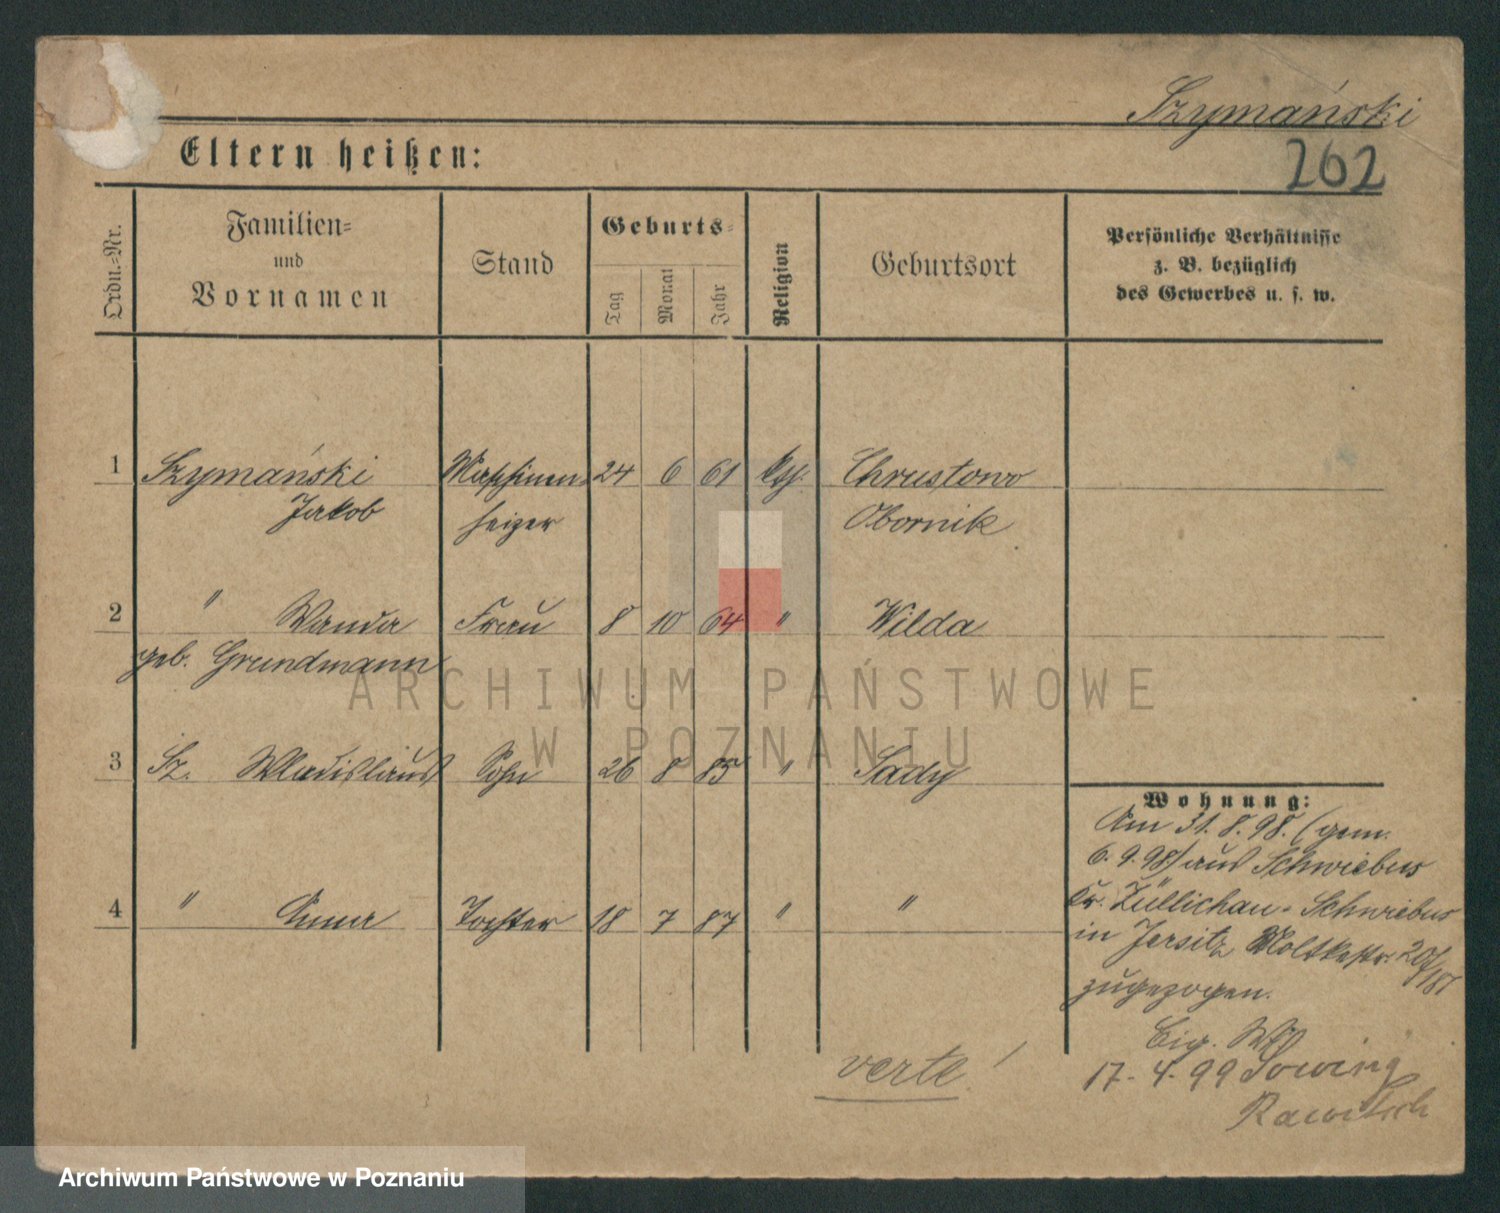 Szymański
262
Eltern heißen:
Ordn.-Nr.
Familien-
und
Vornamen
Stand
Geburts-
Tag
Monat
Jahr
Religion
Geburtsort
Persönliche Verhältnisse
z. B. bezüglich
des Gewerbes u. s. w.
1 Szymański Maschinen- 24 6 61 kth. Chrustowo
Jakob heizer Obornik
2 " Wanda Frau 8 10 64 " Wilda
geb. Grundmann
3 Sz. Wladislaus Sohn 26 8 85 " Sady
4 " Anna Tochter 18 7 87 " "
Wohnung:
Am 31.8.98. (gem.
6.9.98) aus Schwiebus
Kr. Züllichau-Schwiebus
in Jersitz Moltkestr. 20
zugezogen.
Eig. W.
17.4.99
Rawitsch
verte!
ARCHIWUM PAŃSTWOWE
W POZNANIU
Archiwum Państwowe w Poznaniu